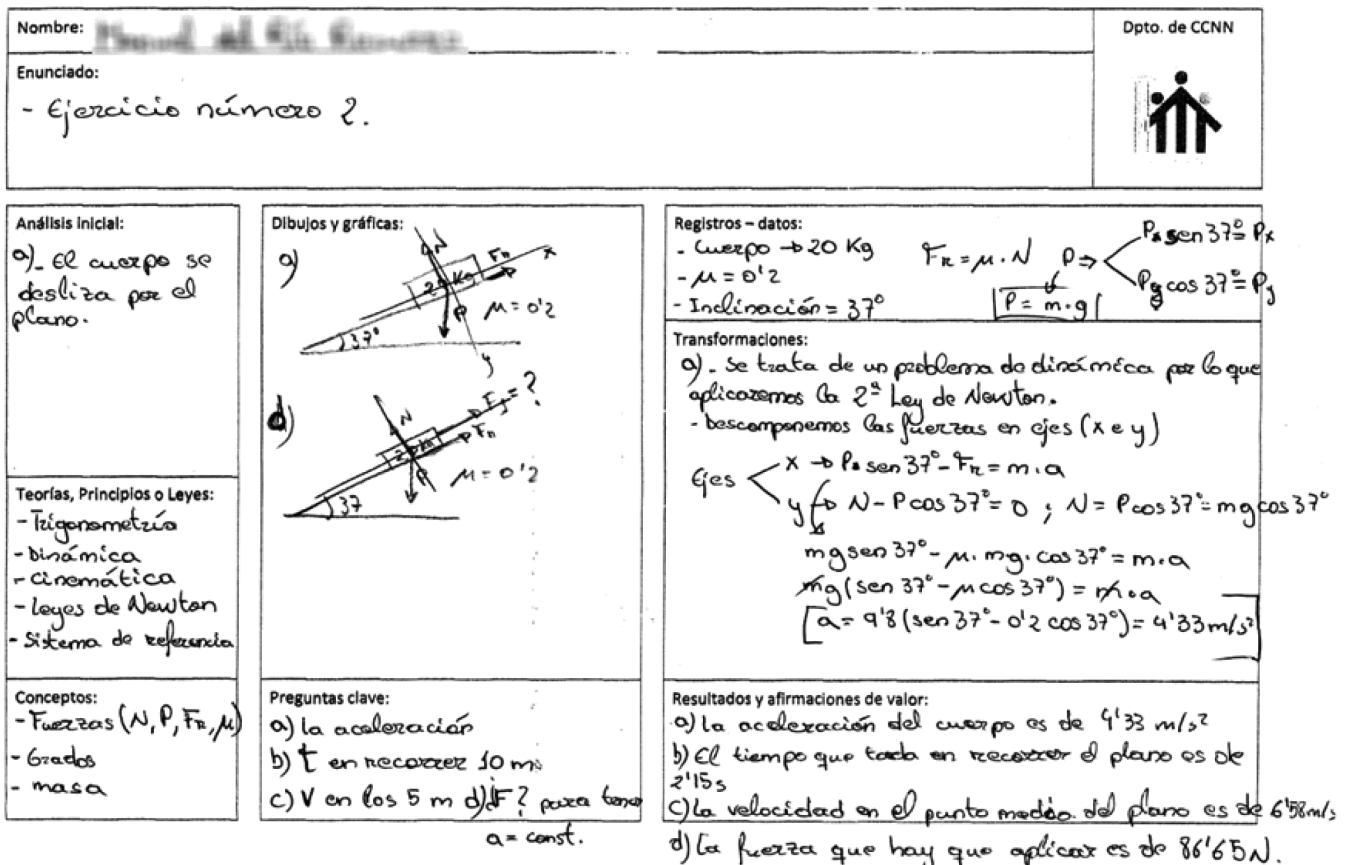 Nombre:
Dpto. de CCNN
Enunciado:
- Ejercicio número 2.
Análisis inicial:
a)- El cuerpo se
desliza por el
plano.
Teorías, Principios o Leyes:
- Trigonometría
- Dinámica
- cinemática
- Leyes de Newton
- Sistema de referencia
Conceptos:
- Fuerzas (N, P, FR, μ)
- Grados
- masa
Dibujos y gráficas:
a)
N
FR
x
20 Kg
P
μ = 0'2
37°
y
d)
N
F = ?
FR
20 Kg
P
μ = 0'2
37
Preguntas clave:
a) la aceleración
b) t en recorrer 10 m
c) V en los 5 m d) ¿F? para tener
a = const.
Registros – datos:
- Cuerpo → 20 Kg
- μ = 0'2
- Inclinación = 37°
FR = μ · N
P ⇒
P sen 37° = Px
P cos 37° = Py
P = m · g
Transformaciones:
a) - Se trata de un problema de dinámica por lo que
aplicaremos la 2ª Ley de Newton.
- Descomponemos las fuerzas en ejes (x e y)
Ejes
x → P sen 37° - FR = m · a
y → N - P cos 37° = 0 ; N = P cos 37° = mg cos 37°
mg sen 37° - μ · mg · cos 37° = m · a
mg (sen 37° - μ cos 37°) = m · a
a = 9'8 (sen 37° - 0'2 cos 37°) = 4'33 m/s²
Resultados y afirmaciones de valor:
a) La aceleración del cuerpo es de 4'33 m/s²
b) El tiempo que tarda en recorrer el plano es de
2'15 s
c) La velocidad en el punto medio del plano es de 6'58 m/s
d) La fuerza que hay que aplicar es de 86'65 N.